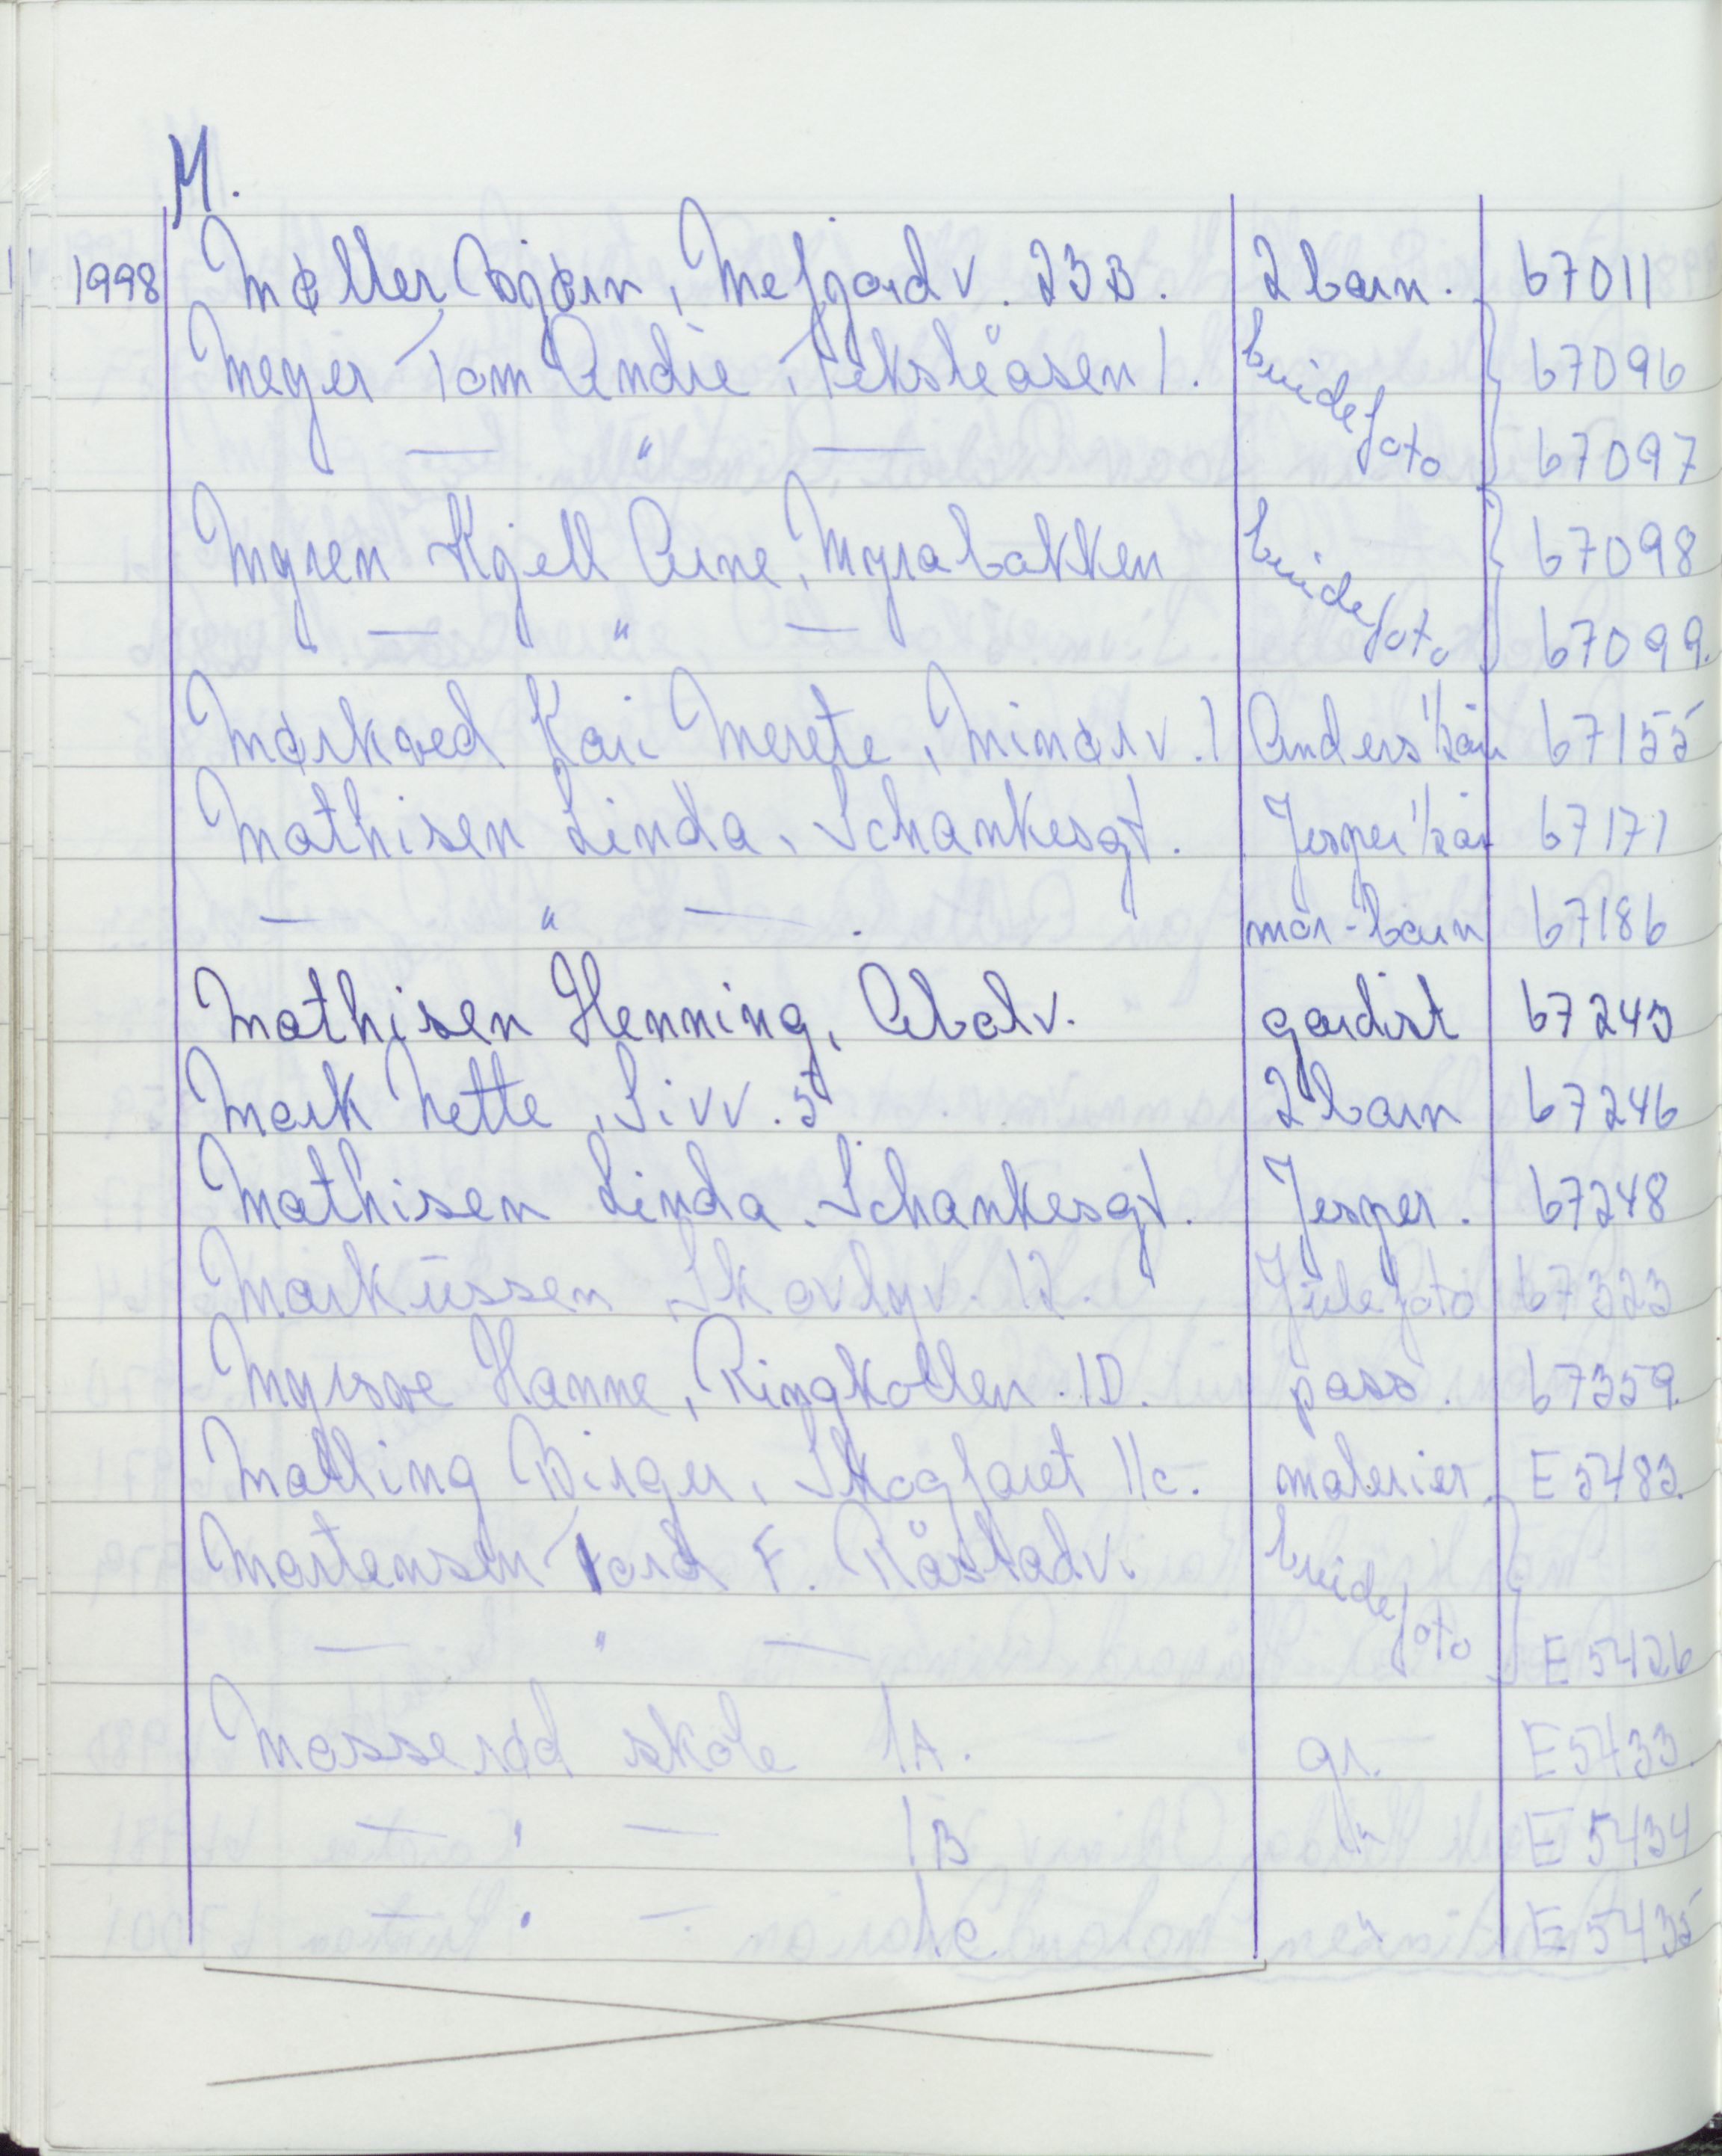 M.
1998 Møller Bjørn, Mefjordv. 23B. 2 barn. 67011
Meyer Tom Andre, Feksleåsen 1. brudefoto 67096
— " — 67097
Myren Kjell Arne, Myrabakken brudefoto 67098
— " — 67099.
Mørkved Kari Merete, Mimarv. 1 Anders 1/2 år 67155
Mathisen Linda, Schankesgt. Jesper 1/2 år 67171
— " — . mor-barn 67186
Mathisen Henning, gardist 67245
Mørk Mette, Sivv. 5 2 barn 67246
Mathisen Linda. Schankesgt. Jesper. 67248
Markussen Skavlyv. 12. Julefoto 67323
Myrsve Hanne, Ringkollen. 1D. pass. 67359.
Malling Birger, Skogfaret 11c. materier. E 5483.
Martensen Tord F. Råstadv. brudefoto
— " — E 5426
Mosserød skole 1A. gr. E 5433.
— " — 1B " E 5434
— " — 1c " E 5435